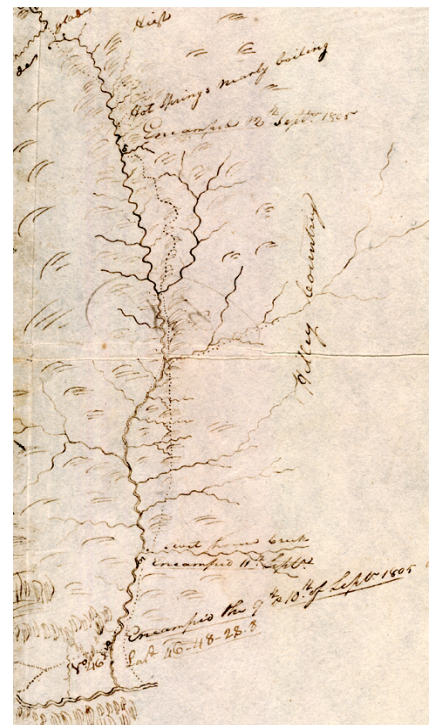 glades
High
Hot Springs nearly boiling
Encamped 12th Septr. 1805
Hilley Country
Creek
Encamped 11th Septr.
Encamped the 9th & 10th of Septr. 1805
Latd. 46-48-28.8